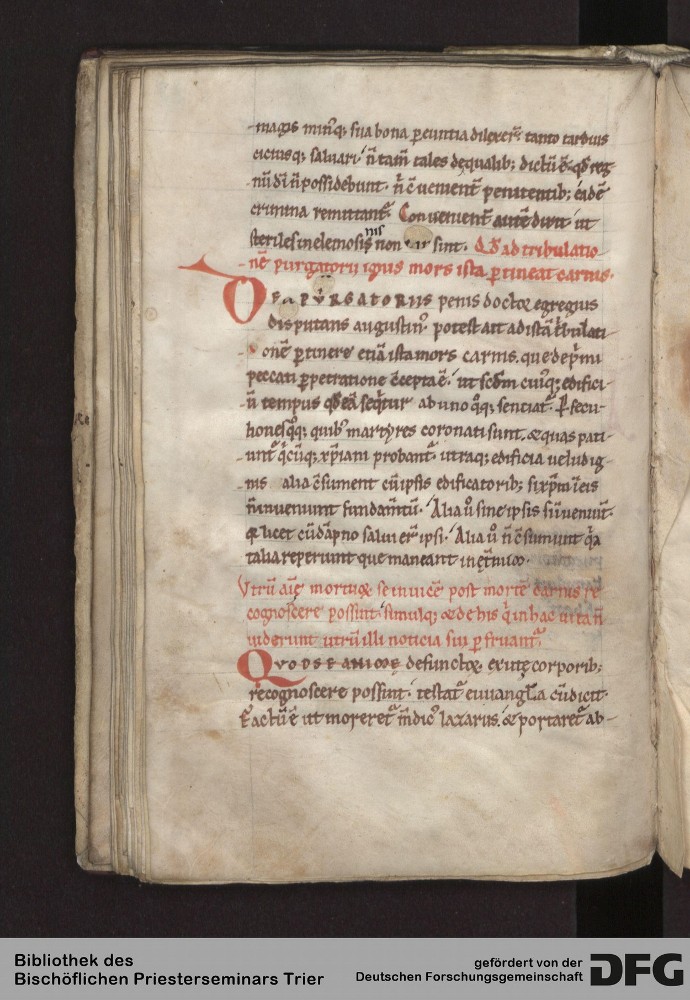 magis min⁹q; sua bona p̄euntia dilexer̄. tanto tardius
cicius q; saluari. n̄ tam̄ tales de qualib; dictū ē. qd̄ reg
nū dī n̄ possidebunt. n̄ c̄uenient̄ penitentib; eadē
crimina remittant̄. Conuenient̄ autē dixit. ut
steriles in elemosinis non sint. Qd̄ ad tribulatio
nē purgatorii ignis mors ista p̄tineat carnis.
DE PURGATORIIS penis doctor egregius
disputans augustin⁹. potest aīt ad istā tribulati
onē p̄tinere etiā ista mors carnis. que de p̄mi
peccati p̄petratione c̄cepta ē. ut scd̄m cui⁹q; edifici
ū tempus qd̄ eā seq̄tur ab uno q̄q; sentiat̄. P̄secu
tiones q̄q; quib⁹ martyres coronati sunt. & quas pati
unt̄ q̄cūq; xp̄iani probant̄. utraq; edificia uelud ig
nis alia c̄sument cū ipsis edificatorib; si xp̄m in eis
n̄ inueniunt fundam̄tū. Alia ū sine ipsis si īueniunt.
q̄ licet cū dāpno salui er̄t ipsi. Alia ū n̄ c̄sumunt q̄a
talia reperiunt que maneant in et̄nū.
Utrū aīę mortuoꝝ se inuicē post mortē carnis re
cognoscere possint. simulq; & de his q̄ in hac uita n̄
uiderunt utrū illi noticia sui p̄fruant̄.
QUOD SE ANIMAE defunctoꝝ exutę corporib;
recognoscere possint. testat̄ euuangl̄ia cū dicit.
Factū ē ut moreret̄ m̄dic⁹ lazarus. & portaret̄ ab
Bibliothek des
Bischöflichen Priesterseminars Trier
gefördert von der
Deutschen Forschungsgemeinschaft
DFG